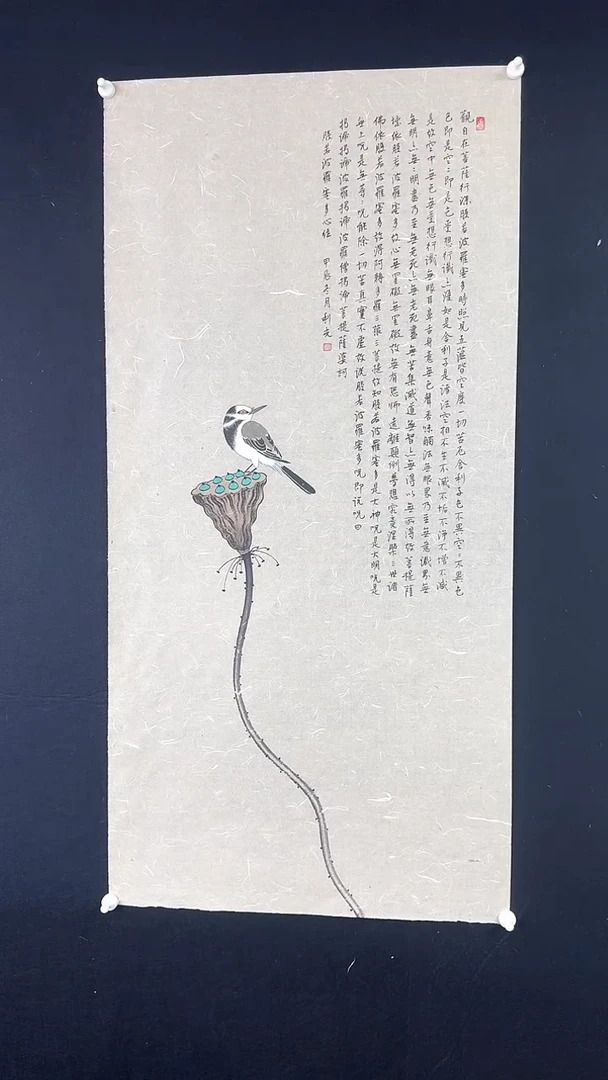 觀自在菩薩行深般若波羅蜜多時照見五蘊皆空度一切苦厄舍利子色不異空空不異色
色即是空空即是色受想行識亦復如是舍利子是諸法空相不生不滅不垢不淨不增不減
是故空中無色無受想行識無眼耳鼻舌身意無色聲香味觸法無眼界乃至無意識界無
無明亦無無明盡乃至無老死亦無老死盡無苦集滅道無智亦無得以無所得故菩提薩
埵依般若波羅蜜多故心無罣礙無罣礙故無有恐怖遠離顛倒夢想究竟涅槃三世諸
佛依般若波羅蜜多故得阿耨多羅三藐三菩提故知般若波羅蜜多是大神咒是大明咒是
無上咒是無等等咒能除一切苦真實不虛故說般若波羅蜜多咒即說咒曰
揭諦揭諦波羅揭諦波羅僧揭諦菩提薩婆訶
般若波羅蜜多心經 甲辰冬月